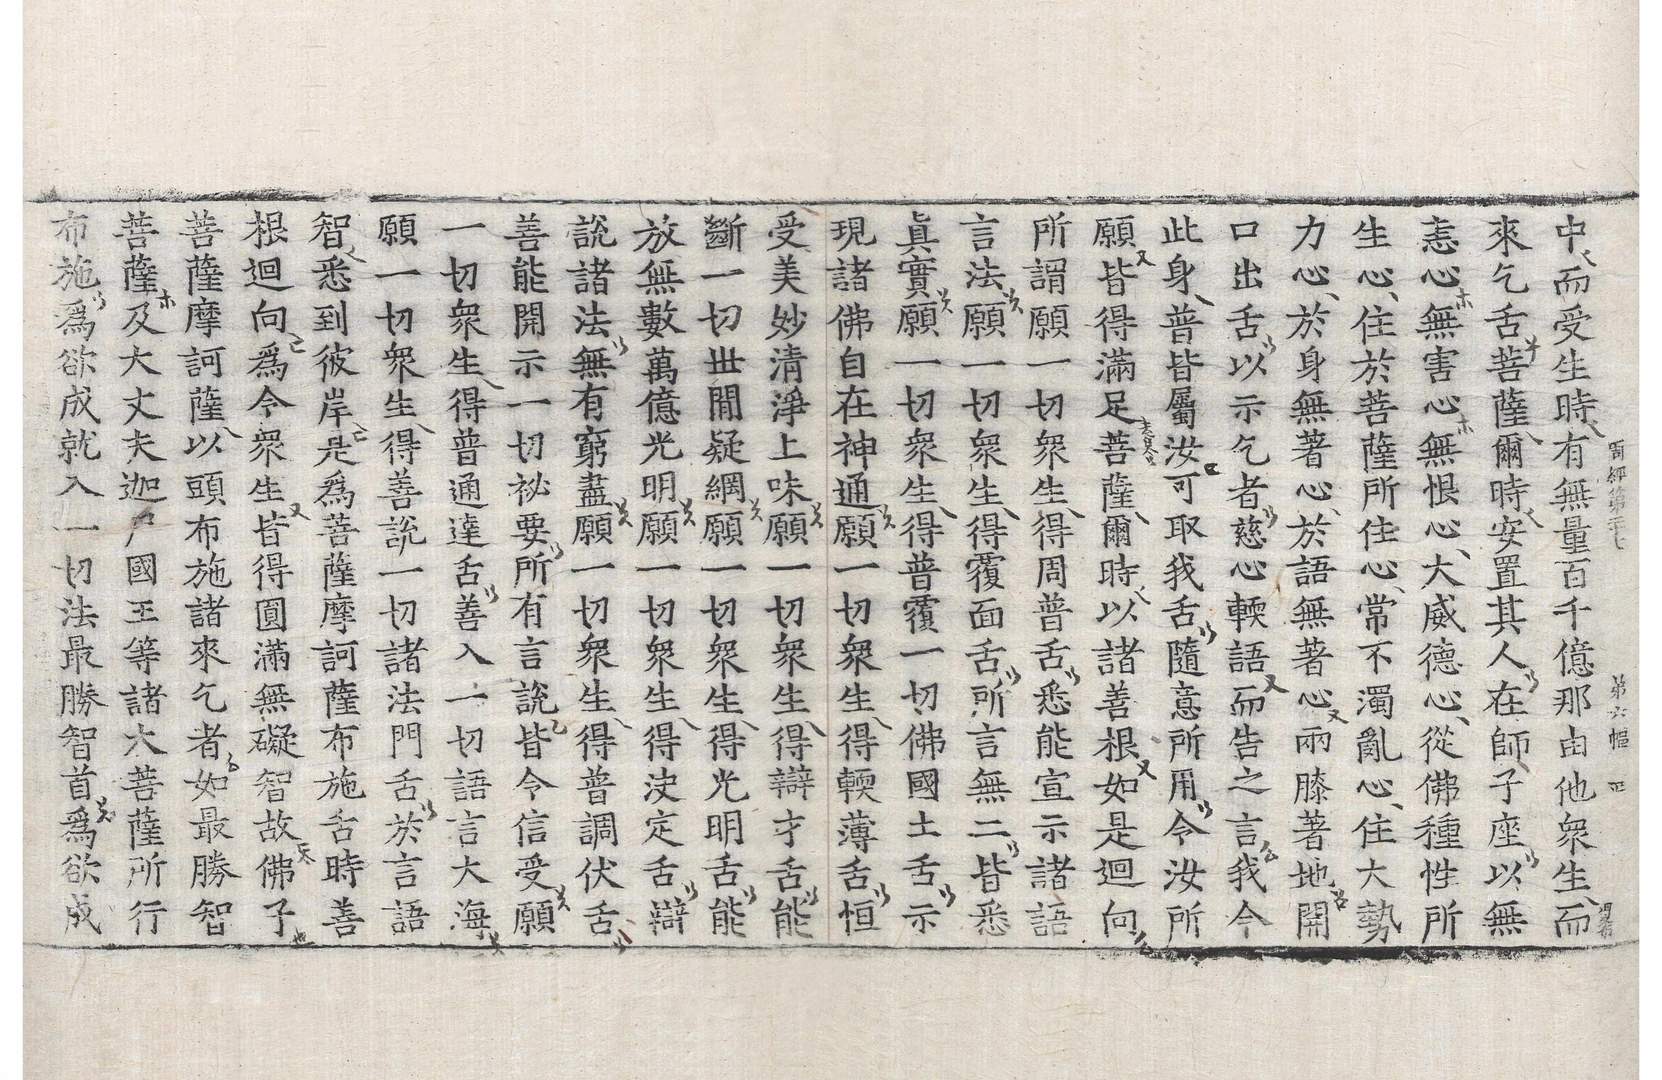 中而受生時有無量百千億那由他衆生而
來乞舌菩薩爾時安置其人在師子座以無
恚心無害心無恨心大威德心從佛種性所
生心住於菩薩所住心常不濁亂心住大勢
力心於身無著心於語無著心兩膝著地開
口出舌以示乞者慈心輭語而告之言我今
此身普皆屬汝可取我舌隨意所用令汝所
願皆得滿足菩薩爾時以諸善根如是迴向
所謂願一切衆生得周普舌悉能宣示諸語
言法願一切衆生得覆面舌所言無二皆悉
眞實願一切衆生得普覆一切佛國土舌示
現諸佛自在神通願一切衆生得輭薄舌恒
受美妙清淨上味願一切衆生得辯才舌能
斷一切世閒疑網願一切衆生得光明舌能
放無數萬億光明願一切衆生得決定舌辯
說諸法無有窮盡願一切衆生得普調伏舌
善能開示一切祕要所有言說皆令信受願
一切衆生得普通達舌善入一切語言大海
願一切衆生得善說一切諸法門舌於言語
智悉到彼岸是爲菩薩摩訶薩布施舌時善
根迴向爲令衆生皆得圓滿無礙智故佛子
菩薩摩訶薩以頭布施諸來乞者如最勝智
菩薩及大丈夫迦尸國王等諸大菩薩所行
布施爲欲成就入一切法最勝智首爲欲成